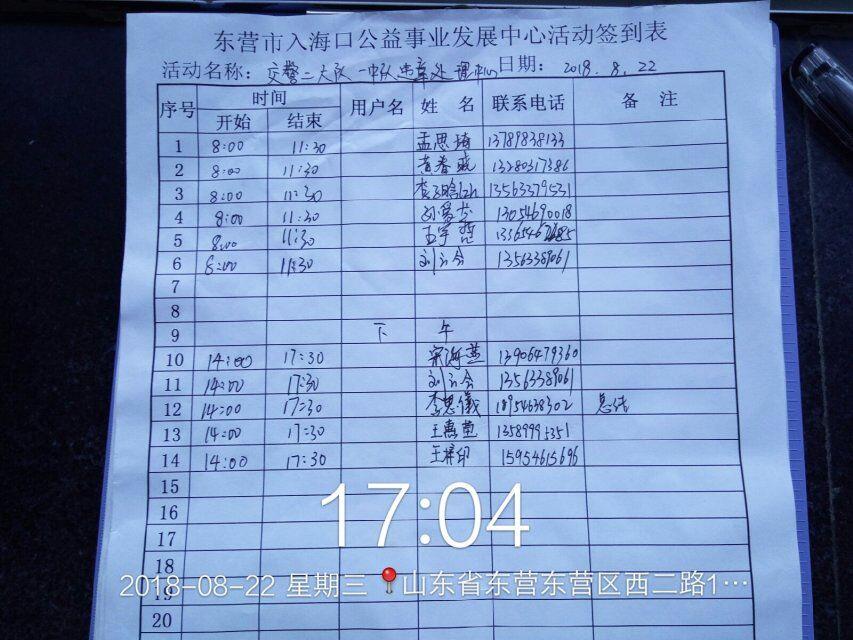 东营市入海口公益事业发展中心活动签到表
活动名称: 交警二大队一中队违章处理中心 日期: 2018.8.22
序号 时间 用户名 姓名 联系电话 备注
开始 结束
1 8:00 11:30 孟思琦 13789838133
2 8:00 11:30 春 13280317386
3 8:00 11:30 13563379531
4 8:00 11:30 刘爱芬 13054690018
5 8:00 11:30 王宇
6 8:00 11:30 刘云会 13563389061
7
8
9 下 午
10 14:00 17:30 宋海燕 13906479360
11 14:00 17:30 刘云会 13563389061
12 14:00 17:30 李思仪 18954638302 总结
13 14:00 17:30 王惠莹 13589995351
14 14:00 17:30 王梓印 15954615696
15
16
17
18
19
20
17:04
2018-08-22 星期三 山东省东营东营区西二路1…